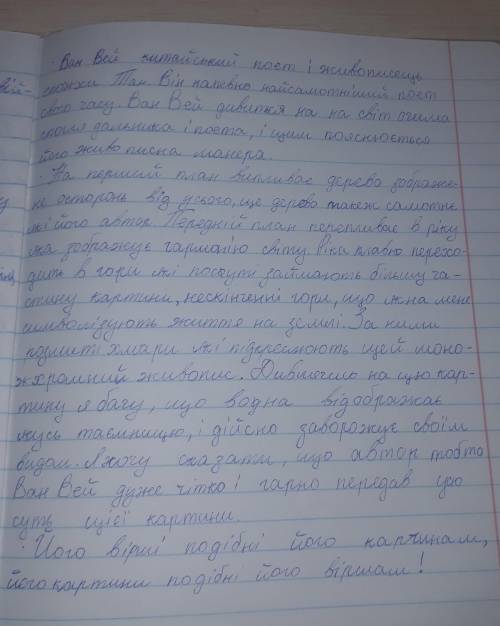 Ван Вей китайський поет і живописець
епохи Тан. Він напевно найсамотніший поет
свого часу. Ван Вей дивится на на світ очима
спогля дальника і поета, і цим пояснюється
його живописна манера.
На перший план випливає дерево зображе-
не осторонь від усього, це дерево також самотнє
які його автор. Передній план перепливає в ріку
яка зображує гармонію світу. Ріка плавно перехо-
дить в гори які поскути займають більшу ча-
стину картини, нескінченні гори, що як на мене
символізують життя на землі. За ними
розлиті хмари які підкреслюють цей моно-
хромний живопис. Дивлячись на цю кар-
тину я бачу, що вона відображає
якусь таємницю, і дійсно заворожує своїм
видом. Я хочу сказати, що автор тобто
Ван Вей дуже чітко і гарно передав цю
суть цієї картини.
Його вірші подібні його картинам,
його картини подібні його віршам!